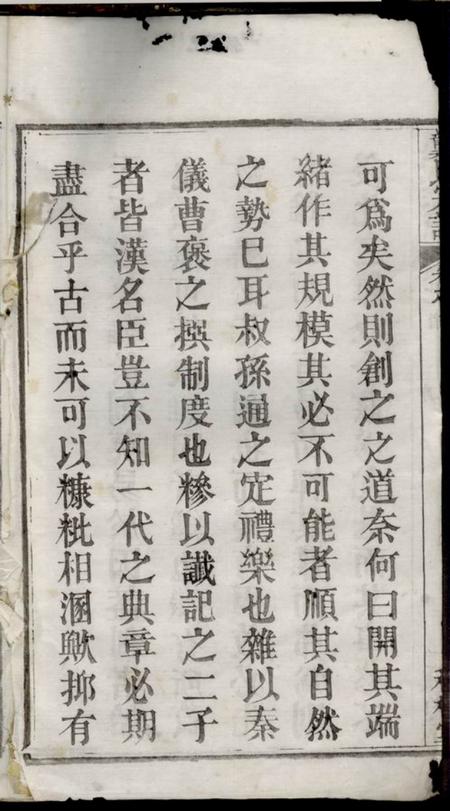 可爲矣然則創之之道奈何曰開其端
緒作其規模其必不可能者順其自然
之勢巳耳叔孫通之定禮樂也雜以秦
儀曹褒之撰制度也糝以讖記之二子
者皆漢名臣豈不知一代之典章必期
盡合乎古而未可以糠粃相溷歟抑有